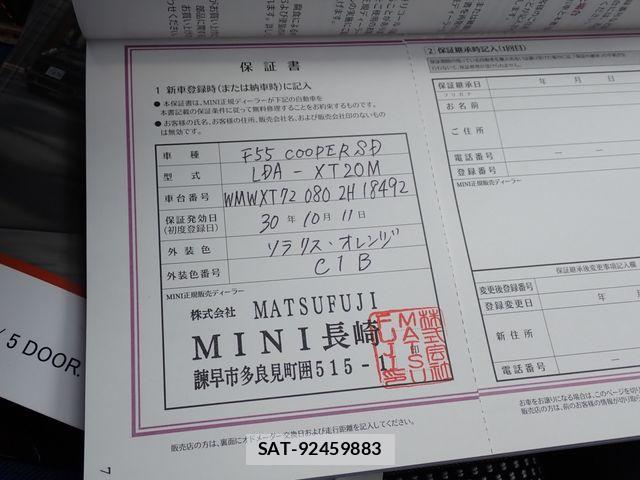 保証書
1 新車登録時(または納車時)に記入
● 本保証書は、MINI正規ディーラーが下記の自動車を
本書記載の保証条件に従って無料修理することをお約束するものです。
● お客様の氏名、お客様の住所、販売会社名、および販売会社印のないもの
は無効です。
車種 F55 COOPER SD
型式 LDA - XT20M
車台番号 WMWXT72 080 2H 18492
保証発効日 30 年 10 月 11 日
(初度登録日)
外装色 ソラリス・オレンジ
外装色番号 C1B
MINI正規販売ディーラー
株式会社 MATSUFUJI
MINI長崎
諫早市多良見町囲515-1
販売店の方は、裏面にオドメーター交換日および走行距離を記入してください。
7
2 保証継承時記入(1回目)
保証継承日 年 月
フリガナ
お名前
ご住所
電話番号 — —
登録番号
MINI正規販売ディーラー
保証継承後変更事項記入欄
変更後登録番号
登録変更日 年
新住所
電話番号 —
お車をお譲りになる場合は、このページを切り
販売店の方は、前のお客様の情報が切り取
/ 5 DOOR.
SAT-92459883